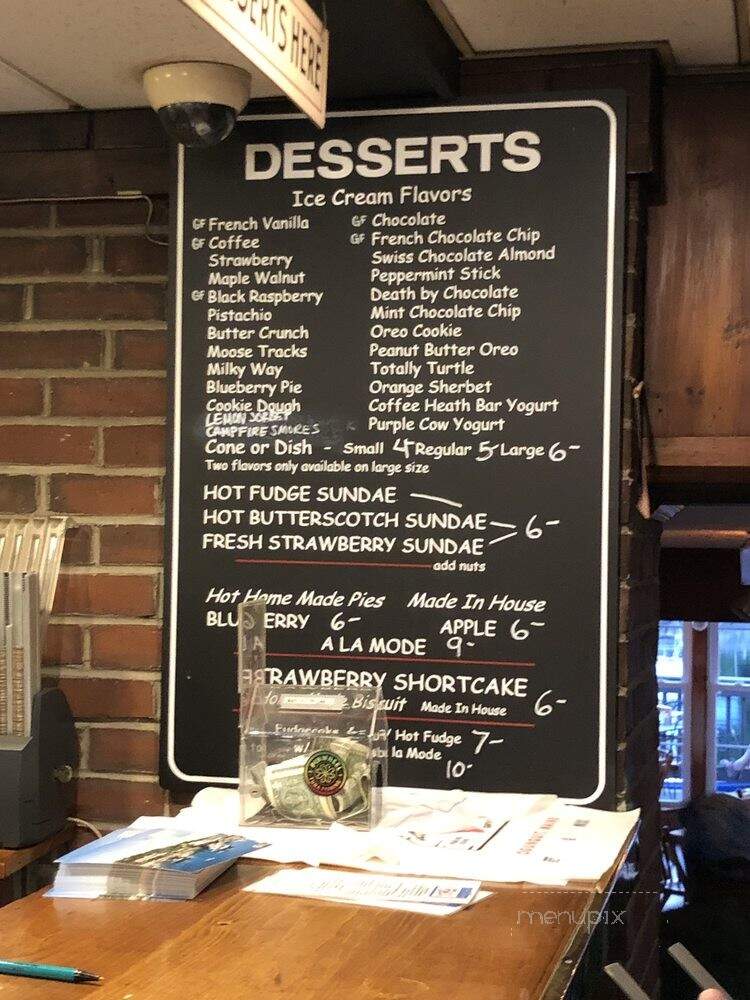 SSERTS HERE
DESSERTS
Ice Cream Flavors
GF French Vanilla
GF Coffee
Strawberry
Maple Walnut
GF Black Raspberry
Pistachio
Butter Crunch
Moose Tracks
Milky Way
Blueberry Pie
Cookie Dough
LEMON SORBET
CAMPFIRE SMORES
GF Chocolate
GF French Chocolate Chip
Swiss Chocolate Almond
Peppermint Stick
Death by Chocolate
Mint Chocolate Chip
Oreo Cookie
Peanut Butter Oreo
Totally Turtle
Orange Sherbet
Coffee Heath Bar Yogurt
Purple Cow Yogurt
Cone or Dish - Small 4 Regular 5- Large 6-
Two flavors only available on large size
HOT FUDGE SUNDAE
HOT BUTTERSCOTCH SUNDAE 6-
FRESH STRAWBERRY SUNDAE
add nuts
Hot Home Made Pies Made In House
BLUEBERRY 6- APPLE 6-
A LA MODE 9-
STRAWBERRY SHORTCAKE 6-
Biscuit Made In House
Hot Fudge 7-
la Mode
10-
menupix